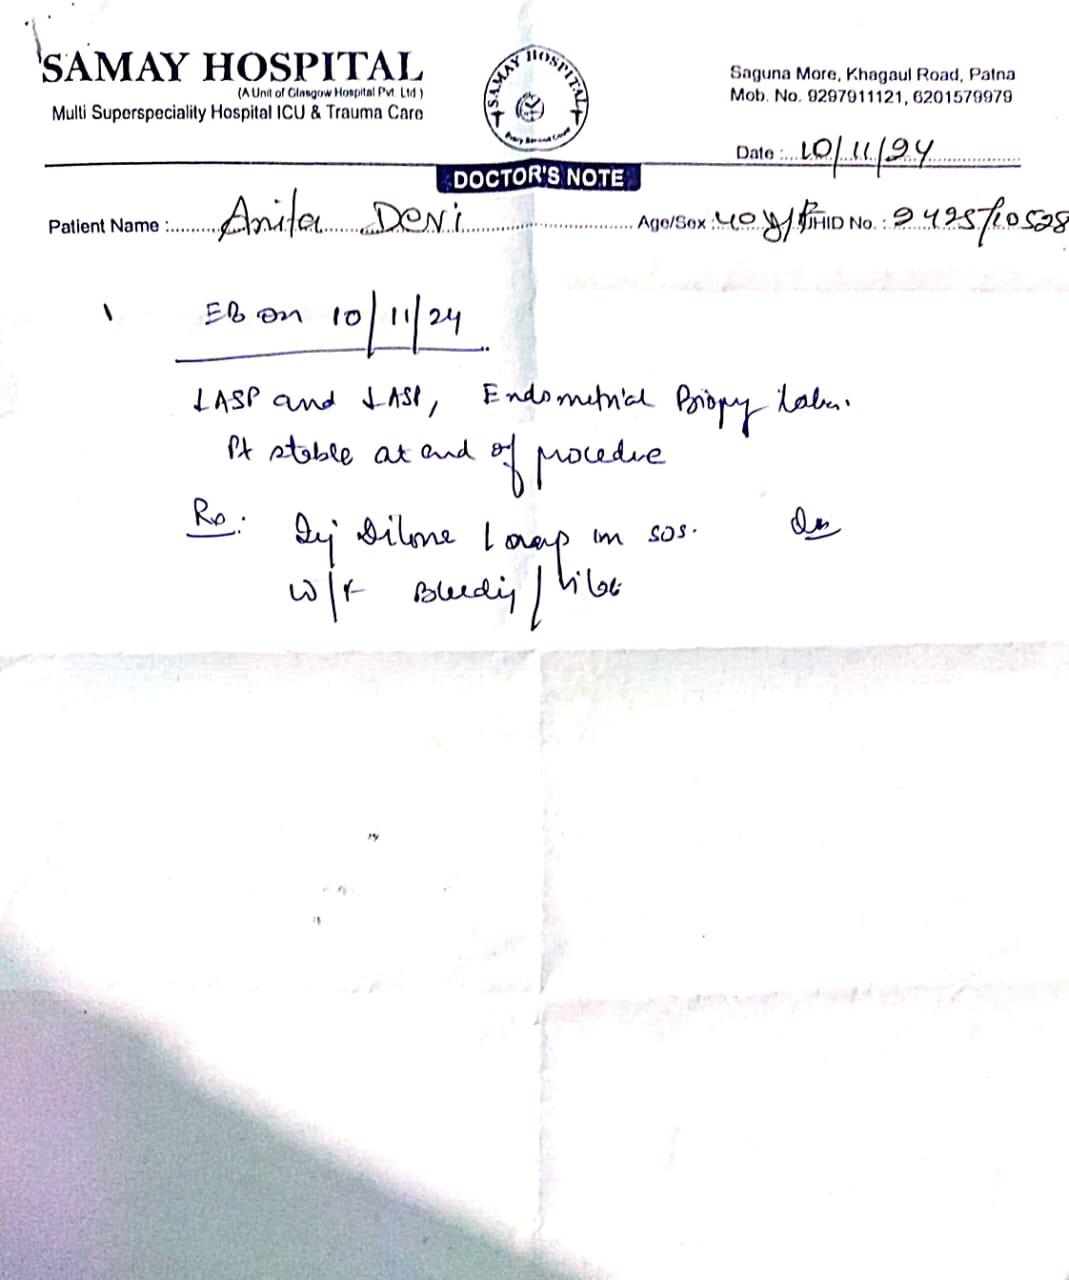 SAMAY HOSPITAL
(A Unit of Glasgow Hospital Pvt. Ltd.)
Multi Superspeciality Hospital ICU & Trauma Care
SAMAY HOSPITAL
Saguna More, Khagaul Road, Patna
Mob. No. 9297911121, 6201579979
Date : 10/11/24
DOCTOR'S NOTE
Patient Name : Anita Devi Age/Sex : 40y/F UHID No. : 2425/10528
EB on 10/11/24
LASP and LASP, Endometrial Biopsy taken.
Pt stable at end of procedure
Rx: Inj Dilone 1 amp im sos.
W/f Bleeding /